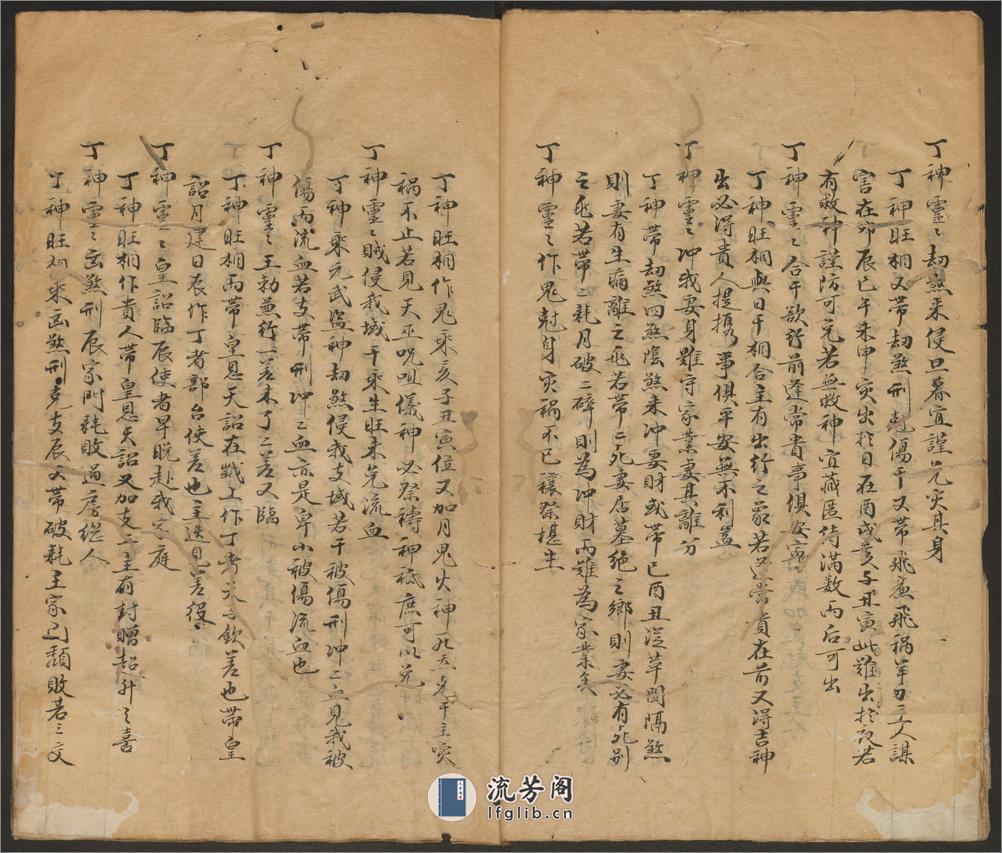 丁神靈之劫煞来侵旦暮宜謹冗灾其身
丁神旺相又带劫煞刑尅傷干又带飛廉飛祸羊刃主人謀
害在卯辰巳午未申灾出扵日在酉戌亥子丑寅此难出扵夜若
有救神謹防可免若無救神宜藏匿待满数内后可出
丁神靈之合干欲行前逢常貴事俱安寧
丁神旺相與日干相合主有出行之象若常貴在前又得吉神
出必得貴人提携事俱平安無不利益
丁神靈之冲我妻身難守家業妻其離分
丁神带劫煞四煞陰煞来冲妻財或带巳酉丑従革関隔煞
則妻有生病離之兆若带二死妻居墓绝之鄉則妻必有死别
之兆若带二耗月破二碎則為冲財丙難為家業矣
丁神靈之作鬼尅身灾禍不已禳祭堪生
丁神旺相作鬼乘亥子丑寅位又加月鬼火神死炁克干主灾
禍不止若見天巫咒咀儀神必祭祷神祗庶可以免
丁神靈之賊侵我城干乘生旺未免流血
丁神乘元武盗神劫煞侵我支域若干被傷刑冲二血見我被
傷而流血若支带刑冲二血亦是卑小被傷流血也
丁神靈之王勅兼行一差未了二差又臨
丁神旺相而带皇恩天詔在歲上作丁者天子欽差也带皇
詔月建日辰作丁者部台使差也主迭見差役
丁神靈之皇詔臨辰使者早晚赴我家庭
丁神旺相作貴人带皇恩天詔又加支上主有封贈超升之喜
丁神靈之凶煞刑辰家門耗敗過房继人
丁神旺相乘凶煞刑克支辰又带破耗主家門頹敗若三交
流芳阁
lfglib.cn